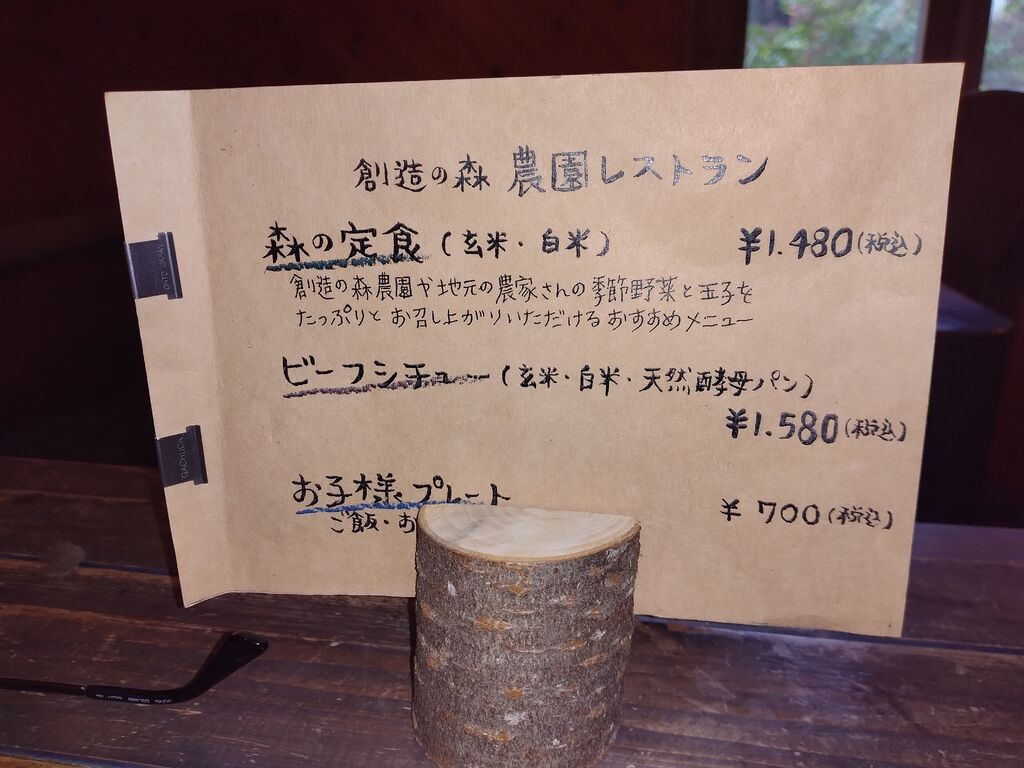 創造の森 農園レストラン
森の定食(玄米・白米) ¥1.480(税込)
創造の森農園や地元の農家さんの季節野菜と玉子を
たっぷりとお召し上がりいただけるおすすめメニュー
ビーフシチュー(玄米・白米・天然酵母パン)
¥1.580(税込)
お子様プレート ¥700(税込)
ご飯・お